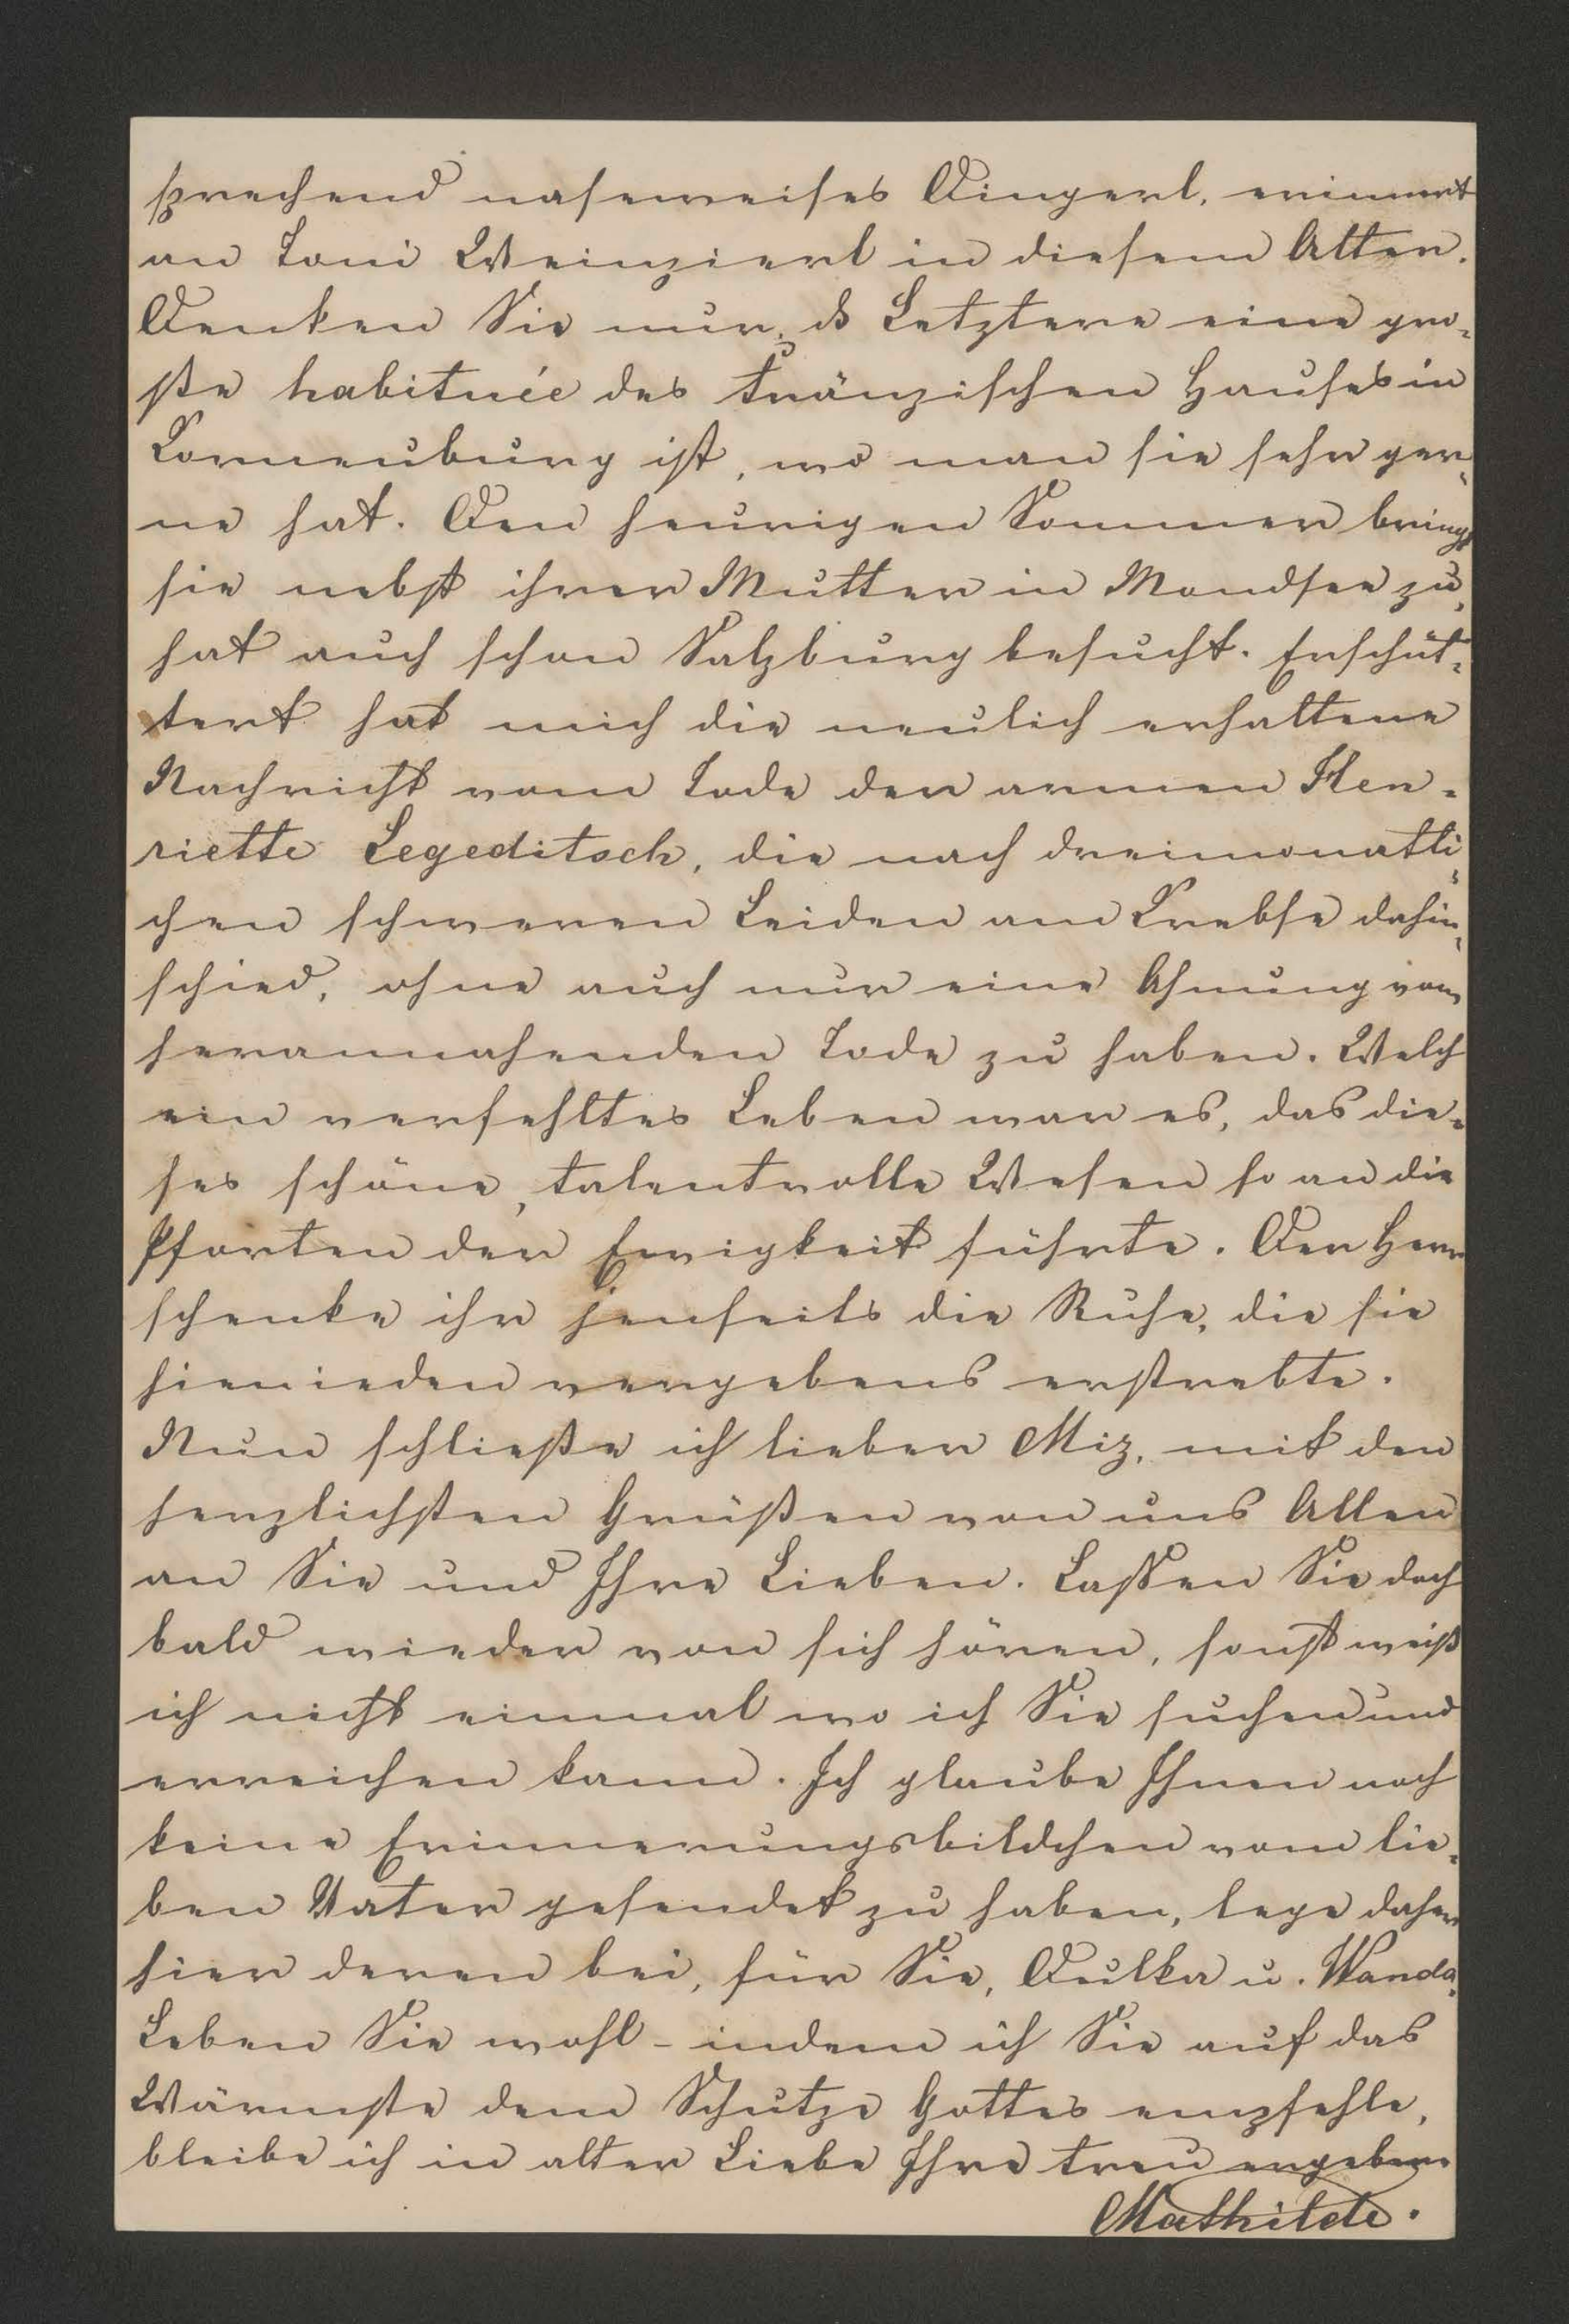 sprechend naseweises Dingerl, erinnert
an Toni Weinzierl in diesem Alter.
Denken Sie nur, ds Letztere eine gro-
ße habituée des Tränzischen Hauses in
Korneuburg ist, wo man sie sehr ger-
ne hat. Den heurigen Sommer bringt
sie nebst ihrer Mutter in Mondsee zu,
hat auch schon Salzburg besucht. Erschüt-
tert hat mich die neulich erhaltene
Nachricht vom Tode der armen Hen-
riette Legeditsch, die nach dreimonatli-
chen schweren Leiden am Krebse dahin-
schied, ohne auch nur eine Ahnung vom
herannahenden Tode zu haben. Welch
ein verfehltes Leben war es, das die-
ses schöne, talentvolle Wesen so an die
Pforten der Ewigkeit führte. Der Herr
schenke ihr jenseits die Ruhe, die sie
hienieden vergebens erstrebte.
Nun schließe ich lieber Miz, mit den
herzlichsten Grüßen von uns Allen
an Sie und Ihre Lieben. Laßen Sie doch
bald wieder von sich hören, sonst weiß
ich nicht einmal wo ich Sie suchen und
erreichen kann. Ich glaube Ihnen noch
keine Erinnerungsbildchen vom lie-
ben Vater gesendet zu haben, lege daher
hier deren bei, für Sie, Dulka u. Wanda.
Leben Sie wohl - indem ich Sie auf das
Wärmste dem Schutze Gottes empfehle,
bleibe ich in alter Liebe Ihre treu ergebene
Mathilde.